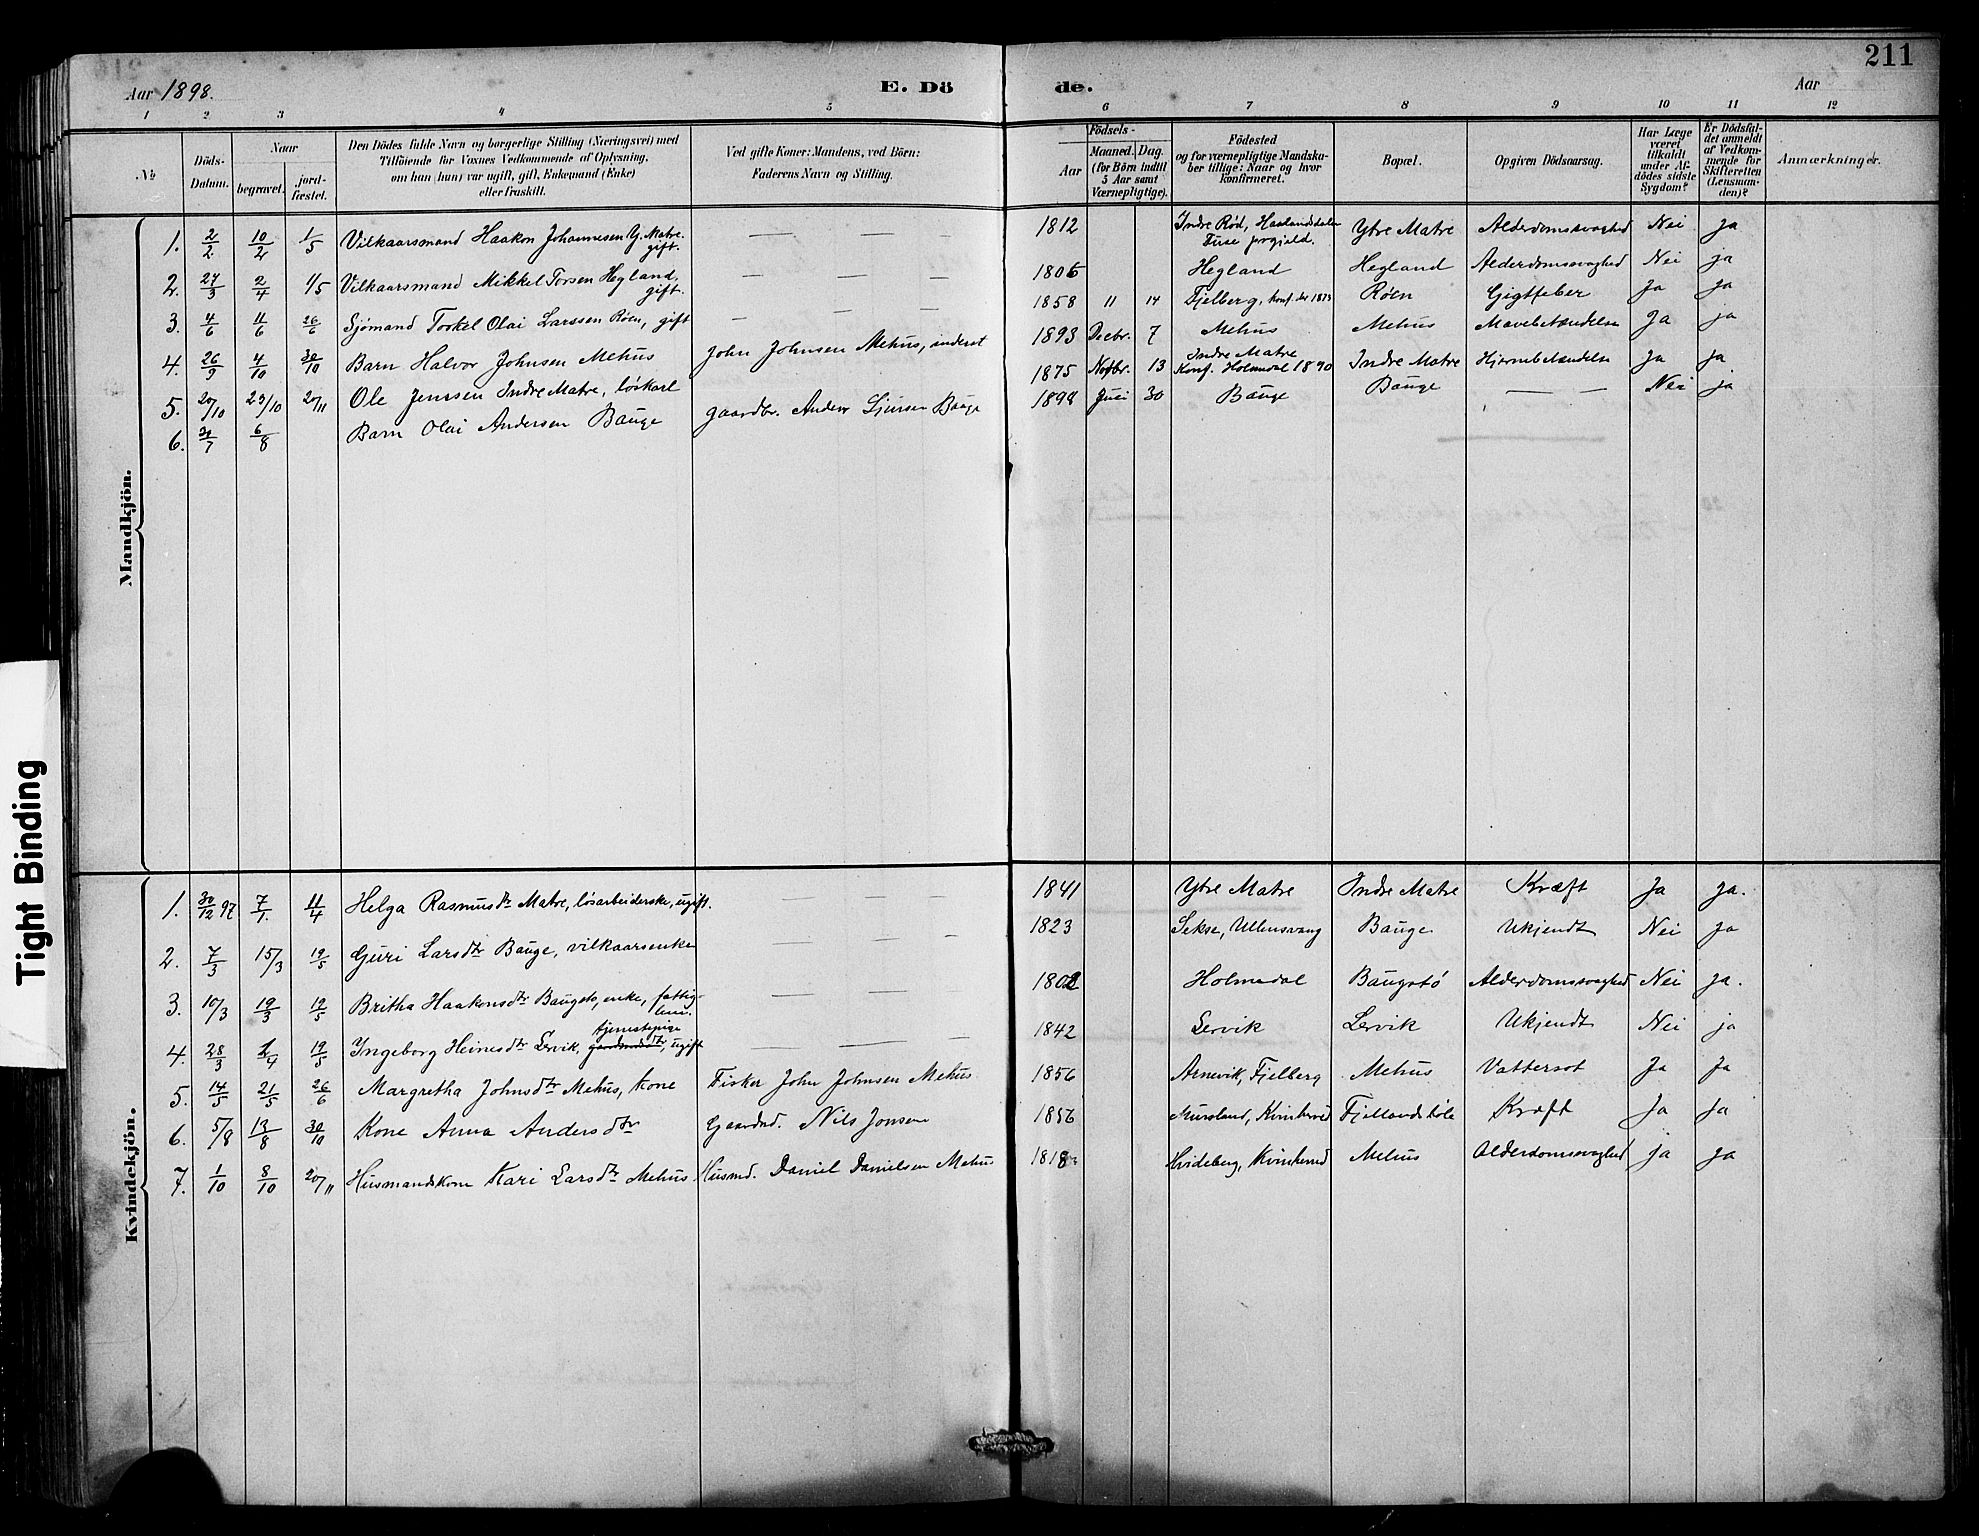 211
Aar 1898.
E. Dö de.
Aar
1 2 3 4 5 6 7 8 9 10 11 12
No
Döds-Datum.
Naar
begravet.
jord-fæstet.
Den Dödes fulde Navn og borgerlige Stilling (Næringsvei) med
Tilföiende for Voxnes Vedkommende af Oplysning,
om han (hun) var ugift, gift, Enkemand (Enke)
eller fraskilt.
Ved gifte Koner: Mandens, ved Börn:
Faderens Navn og Stilling.
Födsels-
Aar
Maaned. Dag.
(for Börn indtil
5 Aar samt
Værnepligtige).
Födested
og for værnepligtige Mandska-
ber tillige: Naar og hvor
konfirmeret.
Bopæl.
Opgiven Dödsaarsag.
Har Læge
været
tilkaldt
under Af-
dödes sidste
Sygdom?
Er Dödsfal-
det anmeldt
af Vedkom-
mende for
Skifteretten
(Lensman-
den)?
Anmærkninger.
Mandkjön.
1. 2/2 10/2 1/5 Vilkaarsmand Haakon Johannesen Y. Matre. gift. — — — 1812 Indre Rød, Haalandsdalen Fuse prgjeld. Ytre Matre Alderdomssvaghed Nei ja
2. 27/3 2/4 1/5 Vilkaarsmand Mikkel Torsen Hegland, gift. — — — 1806 Hegland Hegland Alderdomssvaghed Nei ja
3. 4/6 11/6 26/6 Sjömand Torkel Olai Larssen Röen, gift — — — 1858 11 14 Fjelberg, konf. der 1873 Röen Gigtfeber Ja ja
4. 26/9 4/10 30/10 Barn Halvor Johnsen Mehus John Johnsen Mehus, inderst 1893 Decbr. 7 Mehus Mehus Mavebetændelse Ja ja
5. 20/10 29/10 20/11 Ole Jenssen Indre Matre, löskarl 1875 Novbr. 13 Indre Matre Konf. Holmedal 1890 Indre Matre Hjernebetændelse Ja ja
6. 30/7 6/8 Barn Olai Andersen Bauge gaardbr. Anders Sjursen Bauge 1898 Juli 30 Bauge Bauge — — Nei ja
Kvindekjön.
1. 30/12 97 7/1. 11/4 Helga Rasmusdtr Matre, lösarbeiderske, ugift. — — — 1841 Ytre Matre Indre Matre Kræft Ja ja.
2. 7/3 15/3 19/5 Guri Larsdtr Bauge, vilkaarsenke — — — 1823 Sekse, Ullensvang Bauge Ukjendt Nei ja
3. 10/3 19/3 19/5 Britha Haakensdtr Baugstö, enke, fattig- — — — 1802 Holmedal Baugstö Alderdomssvaghed Nei ja.
4. 28/3 2/4 19/5 Ingeborg Heinesdtr Lervik, tjenestepige, ugift — — — 1842 Lervik Lervik Ukjendt Nei ja
5. 14/5 21/5 26/6 Margretha Johnsdtr Mehus, kone Fisker John Johnsen Mehus 1856 Arnevik, Fjelberg Mehus Vattersot Ja Ja
6. 5/8 13/8 30/10 Kone Anna Andersdtr Gaardbd. Nils Jonsen 1856 Kvinherred Kræft Ja ja
7. 1/10 8/10 20/11 Husmandskone Kari Larsdtr Mehus. Husmd. Daniel Danielsen Mehus 1818 Hvideberg, Kvinherred Mehus Alderdomssvaghed ja ja
Tight Binding